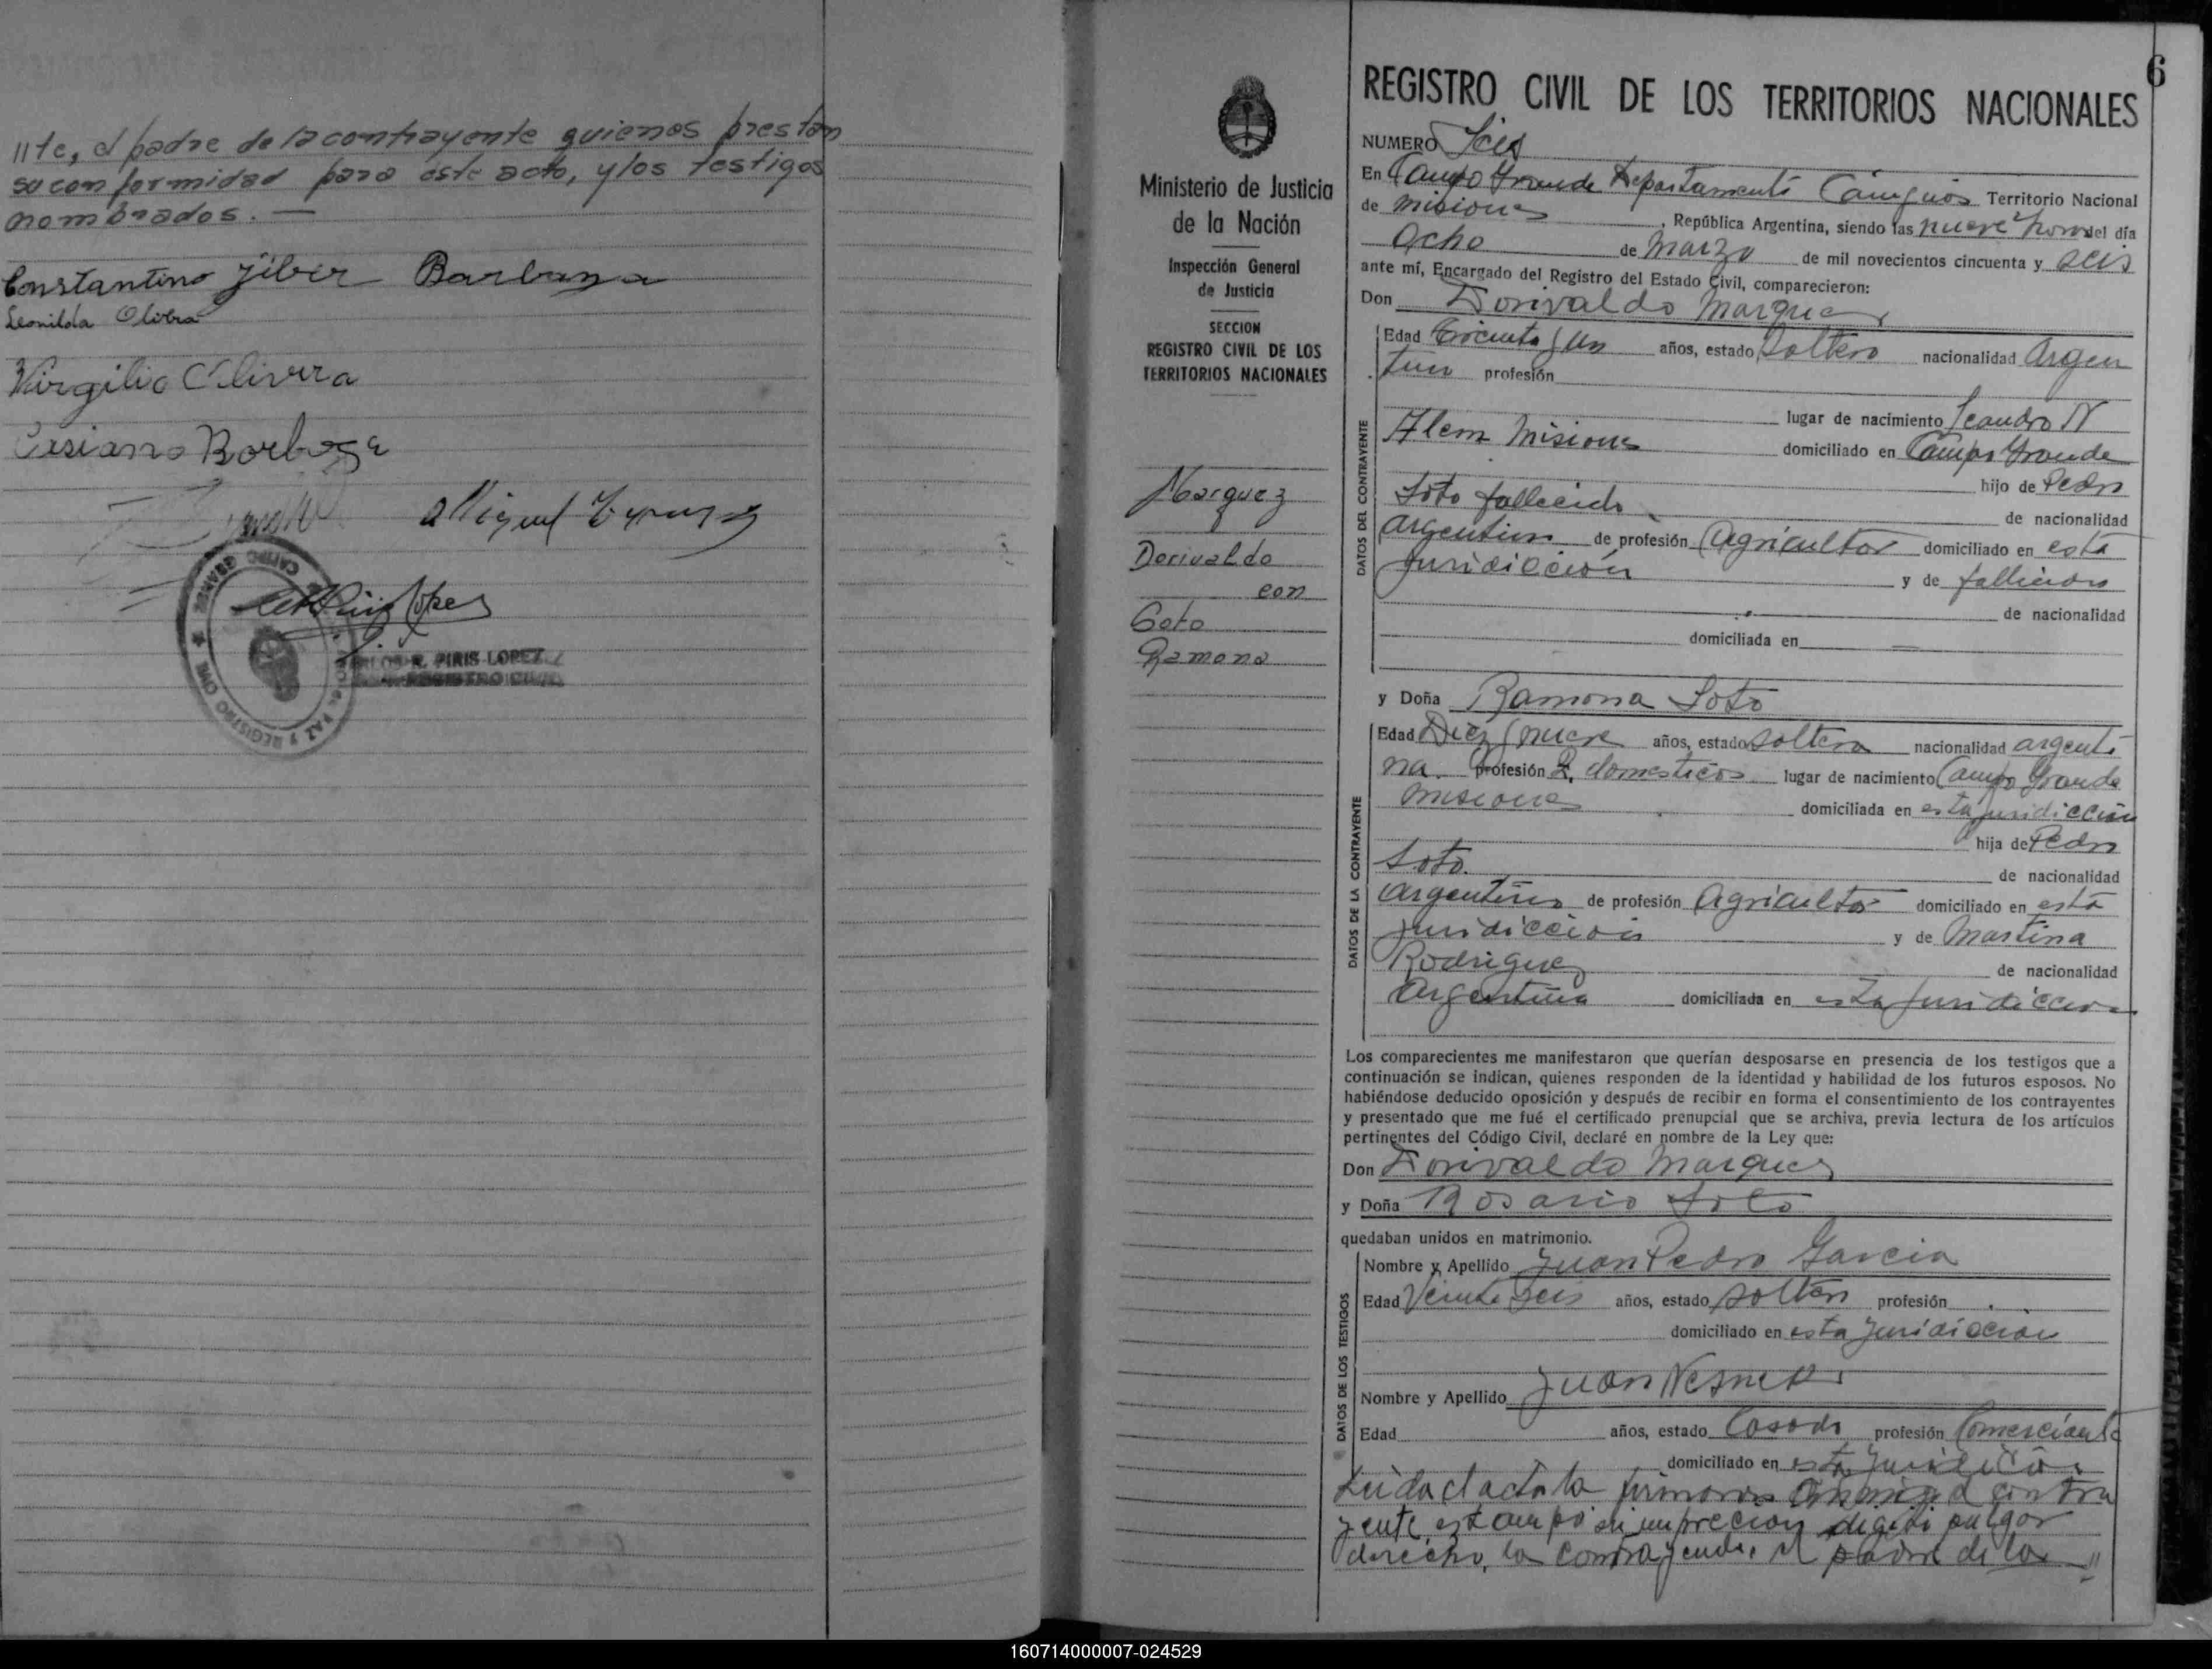 11te, el padre de la contrayente quienes prestan
su conformidad para éste acto, y los testigos
nombrados. —
Constantino Jiber Barbaza
Leonilda Olivra
Virgilio Olivera
Casiano Borboza
Miguel
CAMPO GRANDE
PAZ Y REGISTRO CIVIL
R. PIRIS LOPEZ
REGISTRO CIVIL
Ministerio de Justicia
de la Nación
Inspección General
de Justicia
SECCION
REGISTRO CIVIL DE LOS
TERRITORIOS NACIONALES
Marquez
Dorivaldo
con
Soto
Ramona
6
REGISTRO CIVIL DE LOS TERRITORIOS NACIONALES
NUMERO Seis
En Campo Grande Departamento Cainguás Territorio Nacional
de misiones, República Argentina, siendo las nueve horas del día
Ocho de Marzo de mil novecientos cincuenta y seis
ante mí, Encargado del Registro del Estado Civil, comparecieron:
Don Dorivaldo Marquez
Edad Treinta y un años, estado Soltero nacionalidad Argen
tino profesión
lugar de nacimiento Leandro N
Alem Misiones domiciliado en Campo Grande
hijo de Pedro
Soto fallecido de nacionalidad
argentino de profesión Agricultor domiciliado en esta
Juridicción y de
de nacionalidad
domiciliada en —
DATOS DEL CONTRAYENTE
y Doña Ramona Soto
Edad Diez y nueve años, estado soltera nacionalidad argenti
na. profesión Q. domesticos lugar de nacimiento Campo Grande
misiones domiciliada en esta juridicción
hija de Pedro
Soto. de nacionalidad
argentino de profesión Agricultor domiciliado en esta
juridicción y de Martina
Rodriguez de nacionalidad
Argentina domiciliada en esta Juridiccion
DATOS DE LA CONTRAYENTE
Los comparecientes me manifestaron que querían desposarse en presencia de los testigos que a
continuación se indican, quienes responden de la identidad y habilidad de los futuros esposos. No
habiéndose deducido oposición y después de recibir en forma el consentimiento de los contrayentes
y presentado que me fué el certificado prenupcial que se archiva, previa lectura de los artículos
pertinentes del Código Civil, declaré en nombre de la Ley que:
Don Dorivaldo Marquez
y Doña Rosario Soto
quedaban unidos en matrimonio.
Nombre y Apellido Juan Pedro Garcia
Edad Veinte seis años, estado soltero profesión
domiciliado en esta Juridiccion
Nombre y Apellido Juan
Edad años, estado Casado profesión Comerciante
domiciliado en esta Juridición
DATOS DE LOS TESTIGOS
Leida el acta la firmaron Conmigo el contra
yente estampó su imprecion digito pulgar
derecho, la contrayente, el padre de la //
160714000007-024529